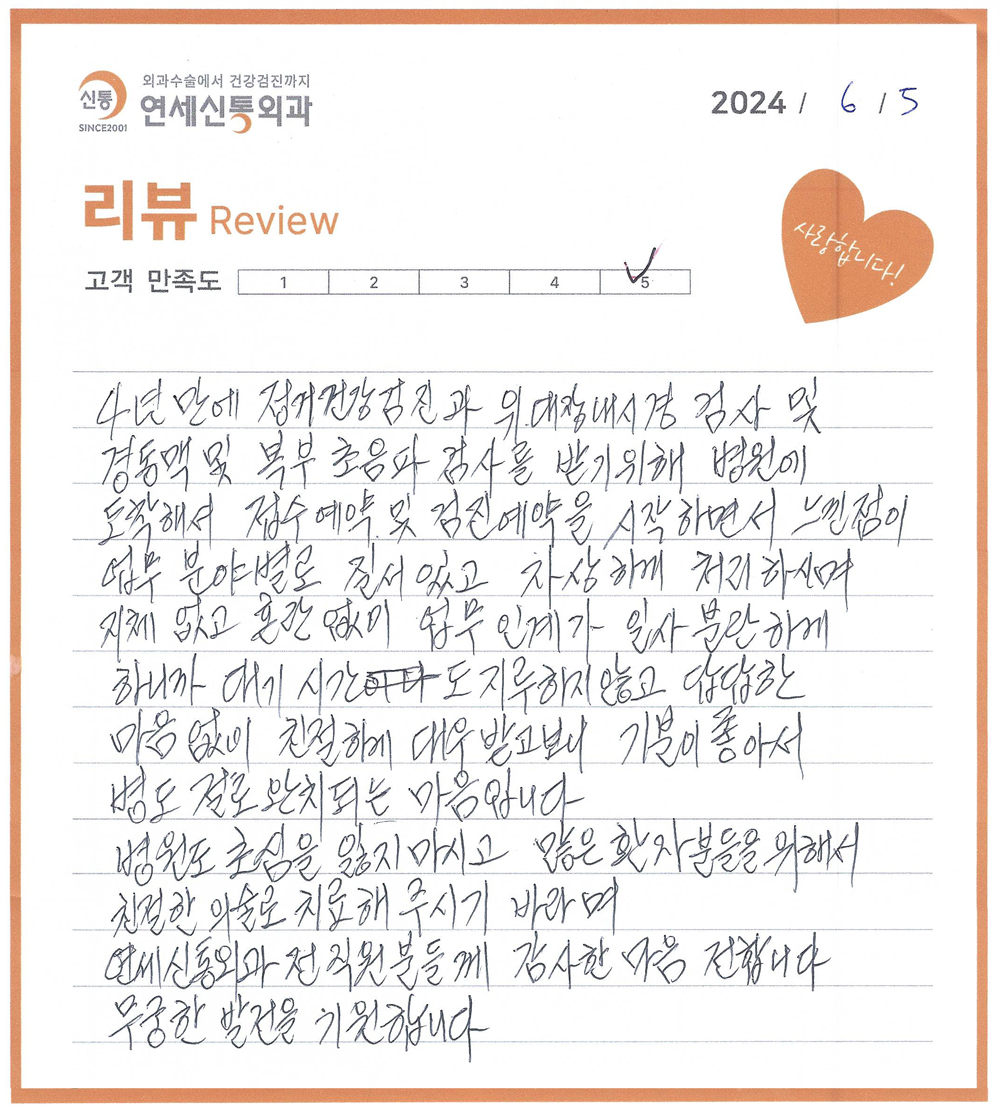 외과수술에서 건강검진까지
신통
연세신통외과
SINCE2001
2024 / 6 / 5
리뷰 Review
사랑합니다!
고객 만족도 1 2 3 4 5
4년만에 정기건강검진과 위.대장내시경 검사 및
경동맥 및 복부 초음파 검사를 받기위해 병원에
도착해서 접수예약 및 검진예약을 시작하면서 느낀점이
업무 분야별로 질서있고 자상하게 처리하시며
지체 없고 혼란 없이 업무 인계가 일사 불란하게
하니까 대기 시간도 지루하지않고 답답한
마음없이 친절하게 대우받고보니 기분이 좋아서
병도 절로 완치되는 마음입니다
병원도 초심을 잃지마시고 많은 환자분들을 위해서
친절한 의술로 치료해 주시기 바라며
연세신통외과 전 직원분들께 감사한 마음 전합니다
무궁한 발전을 기원합니다